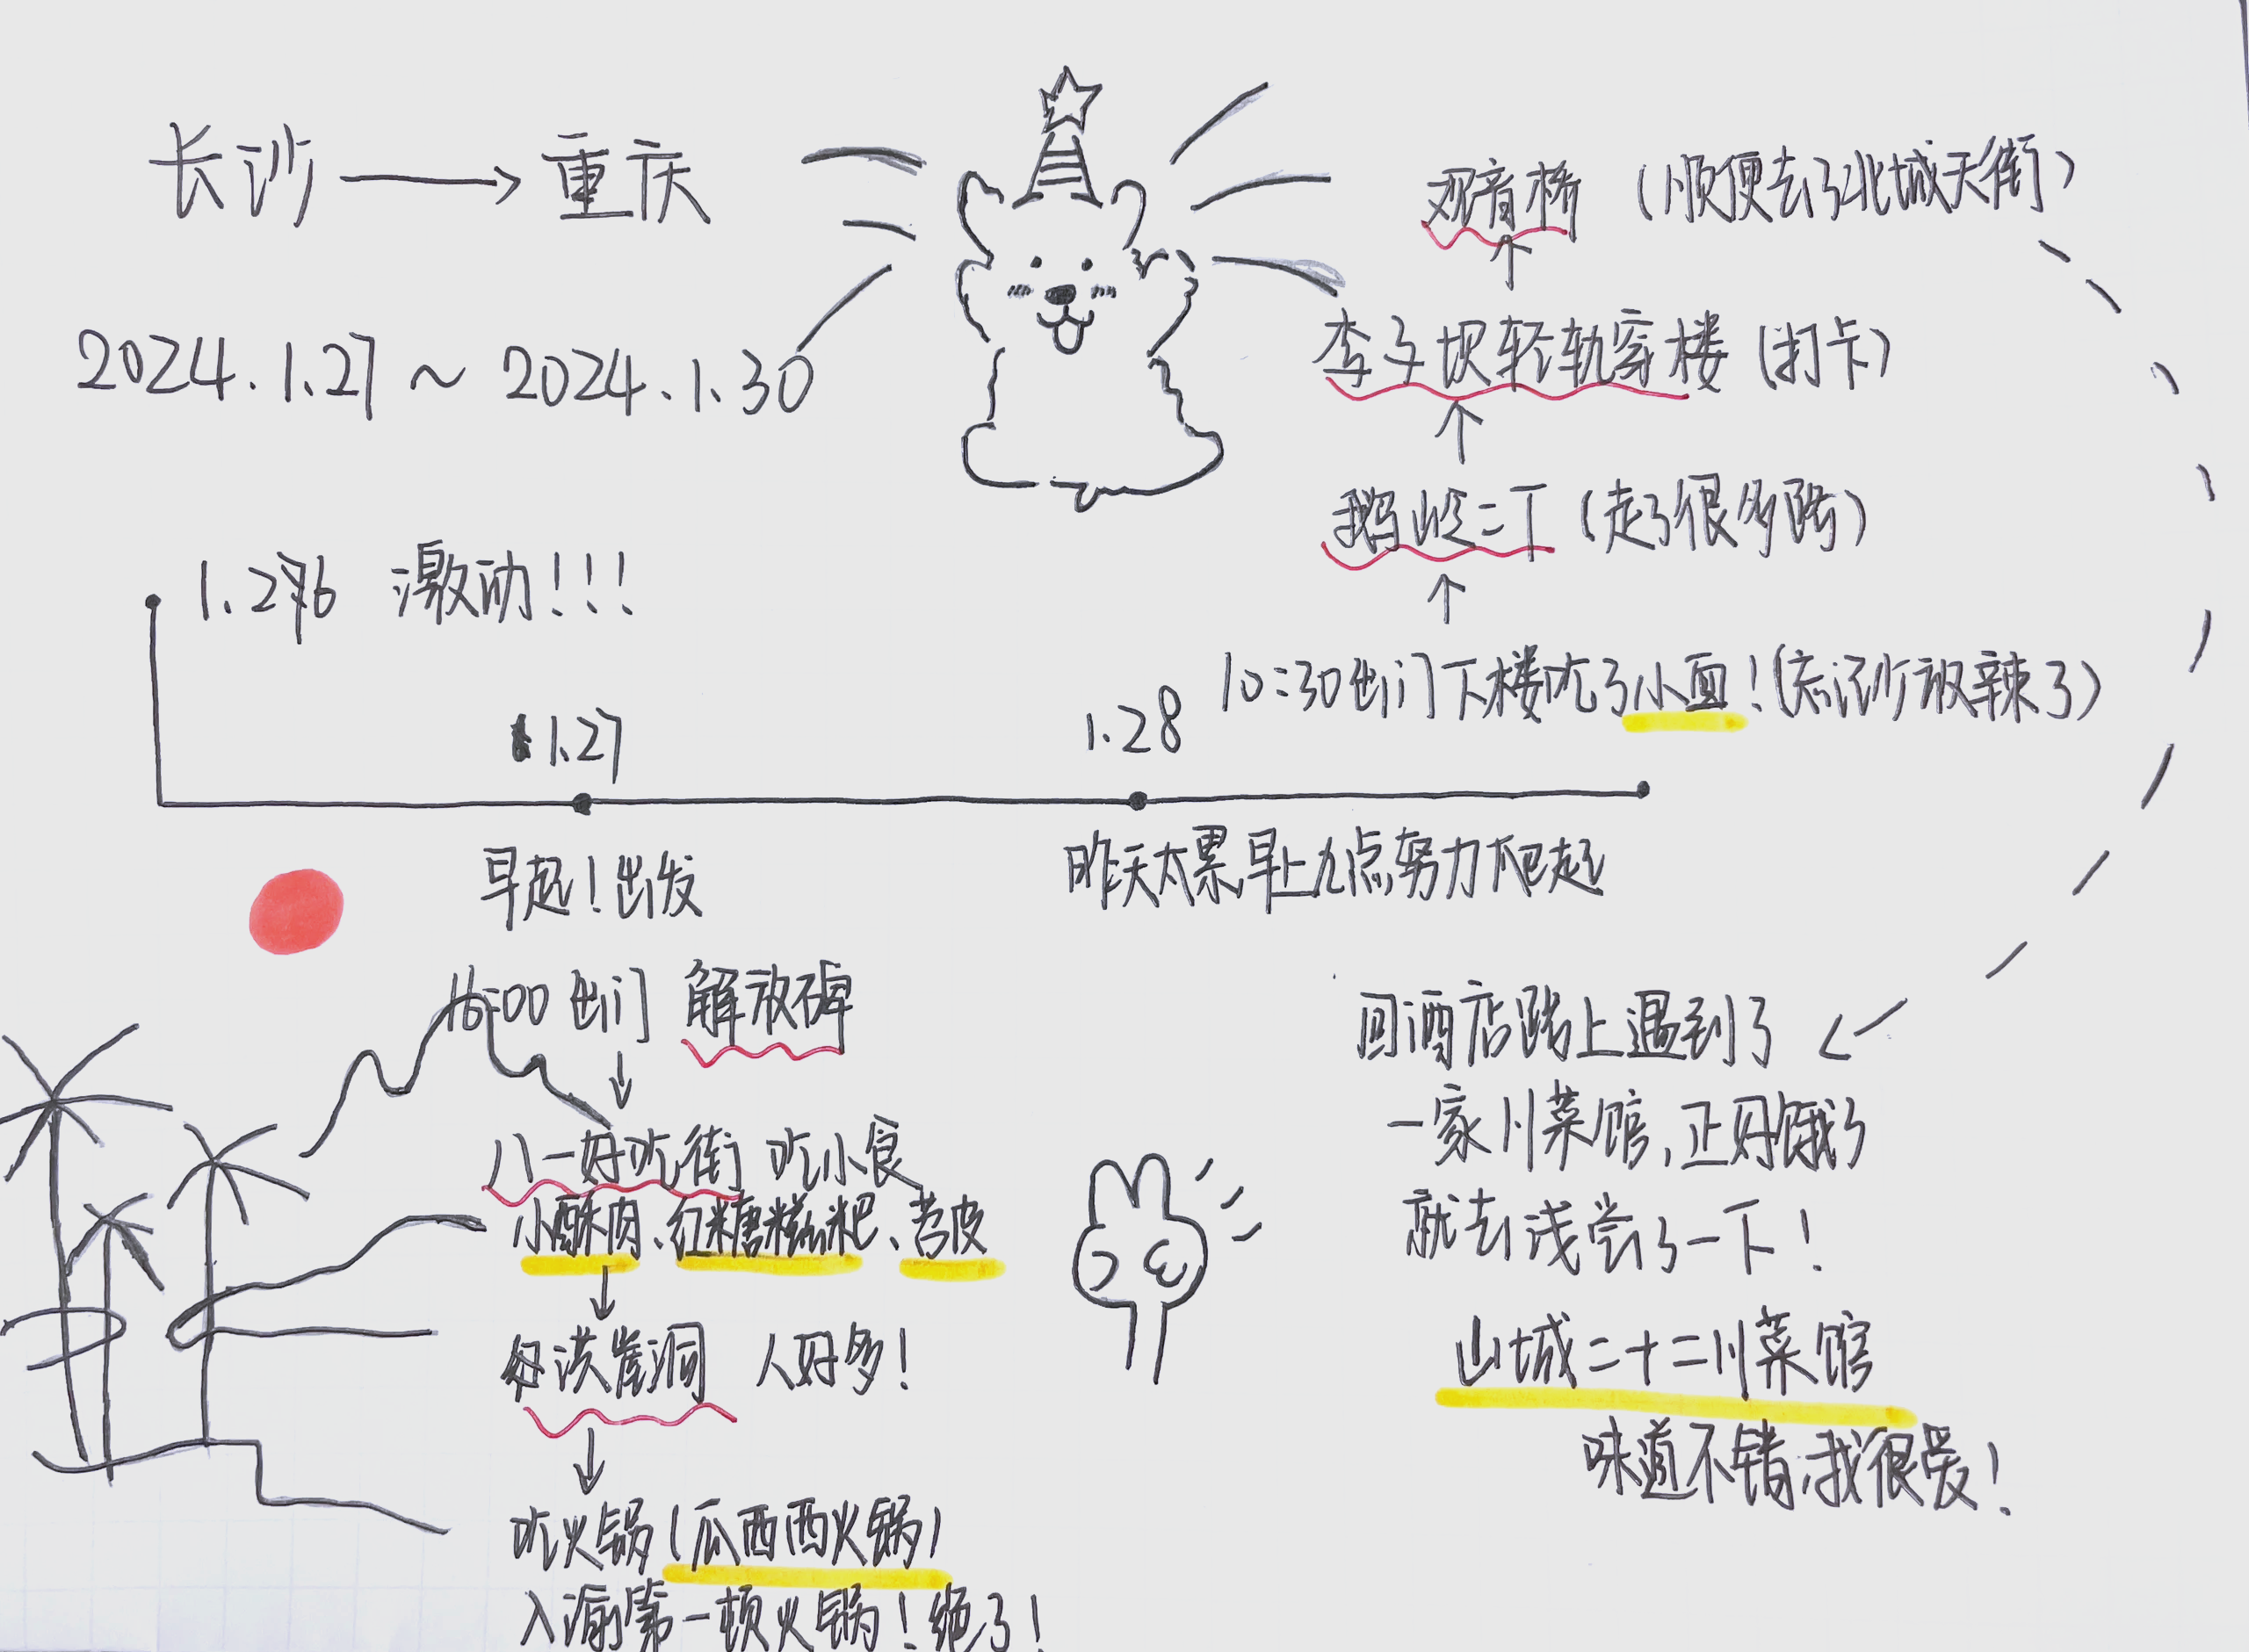 长沙 → 重庆
2024.1.27 ~ 2024.1.30
1.26 激动!!!
1.27
早起!出发
16:00 出门 解放碑
↓
八一好吃街 吃小食
小酥肉、红糖糍粑、苕皮
↓
洪崖洞 人好多!
↓
吃火锅(瓜西西火锅)
入渝第一顿火锅!绝了!
1.28
昨天太累,早上九点努力爬起
10:30出门下楼吃了小面!(忘记少放辣了)
↑
鹅岭二厂(走了很多路)
↑
李子坝轻轨穿楼(打卡)
↑
观音桥(顺便去了北城天街)
回酒店路上遇到了
一家川菜馆,正好饿了
就去浅尝了一下!
山城二十二川菜馆
味道不错,我很爱!